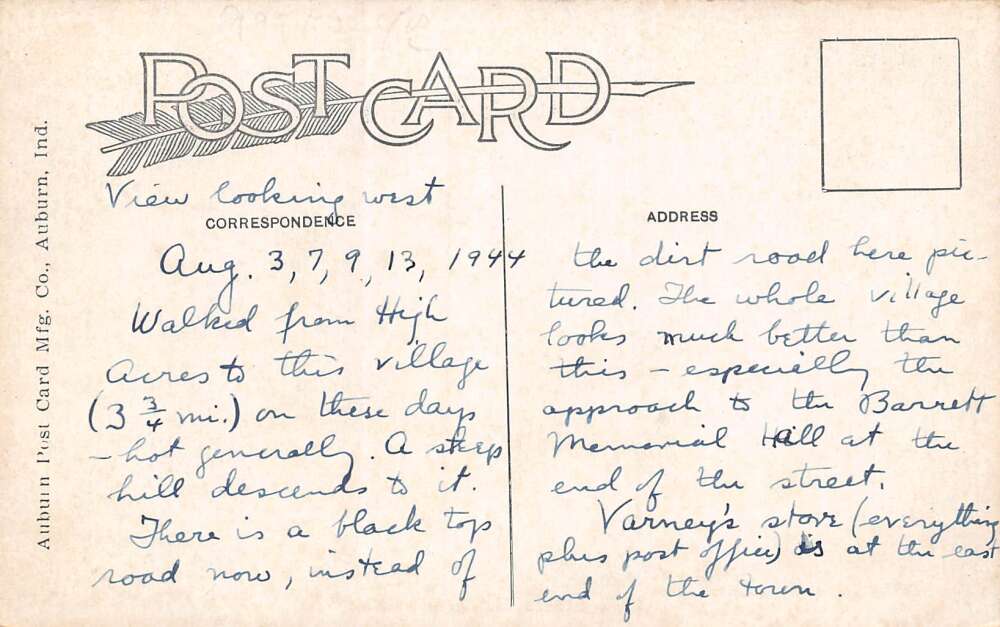 POST CARD
Auburn Post Card Mfg. Co., Auburn, Ind.
View looking west
CORRESPONDENCE
Aug. 3, 7, 9, 13, 1944
Walked from High
Acres to this village
(3 3/4 mi.) on these days
– hot generally. A steep
hill descends to it.
There is a black top
road now, instead of
ADDRESS
the dirt road here pic-
tured. The whole village
looks much better than
this – especially the
approach to the Barrett
Memorial Hall at the
end of the street.
Varney's store (everything
plus post office) is at the east
end of the town.